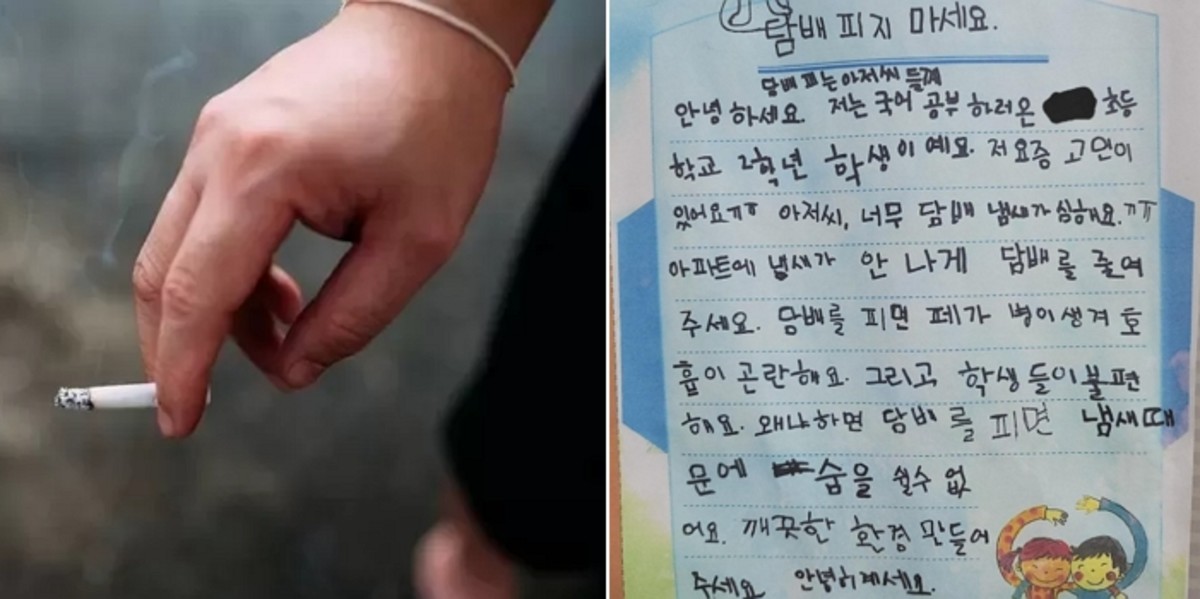 담배 피지 마세요.
담배 피는 아저씨 들께
안녕 하세요. 저는 국어 공부 하러온 초등
학교 2학년 학생이 예요. 저 요즘 고민이
있어요ㅠㅠ 아저씨, 너무 담배 냄새가 심해요.ㅠㅠ
아파트에 냄새가 안 나게 담배를 줄여
주세요. 담배를 피면 페가 병이생겨 호
흡이 곤란해요. 그리고 학생들이 불편
해요. 왜냐하면 담배를 피면 냄새때
문에 숨을 쉴수 없
어요. 깨끗한 환경 만들어
주세요 안녕히계세요.